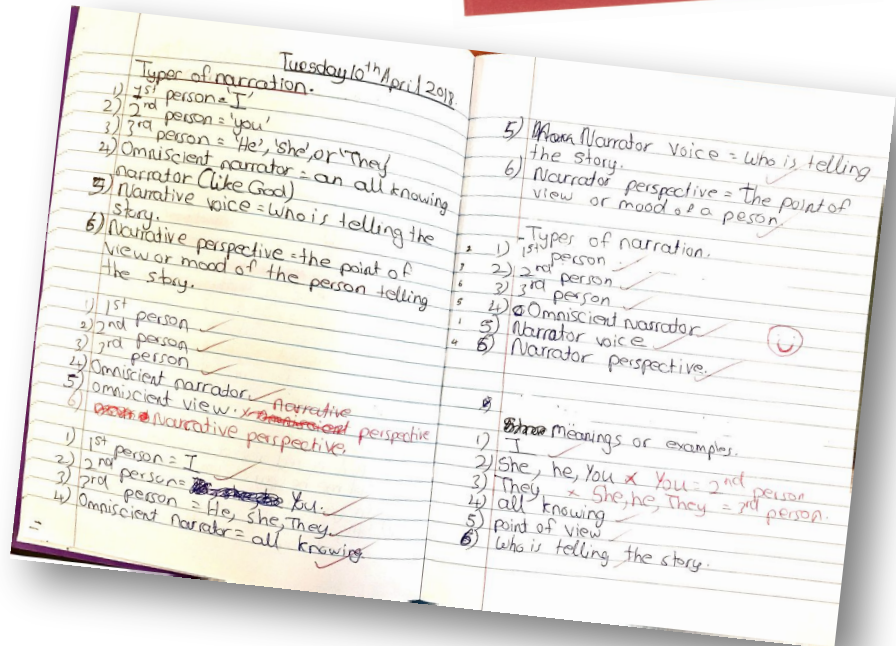 Tuesday 10th April 2018.
Types of narration.
1) 1st person = 'I'
2) 2nd person = 'you'
3) 3rd person = 'He', 'she', or 'They
4) Omniscient narrator = an all knowing
narrator (like God)
5) Narrative voice = who is telling the
story.
6) Narrative perspective = the point of
view or mood of the person telling
the story.
1) 1st person
2) 2nd person
3) 3rd person
4) Omniscient narrator.
5) omniscient view. x Narrative perspective
6) Narrative perspective.
1) 1st person = I
2) 2nd person = You.
3) 3rd person = He, She, They.
4) Omniscient narrator = all knowing
5) Narrator voice = who is telling
the story.
6) Narrator perspective = The point of
view or mood of a peson.
-Types of narration.
2 1) 1st person
3 2) 2nd person
6 3) 3rd person
5 4) Omniscient narrator
1 5) Narrator voice
4 6) Narrator perspective.
meanings or examples.
1) I
2) She, he, You x You = 2nd person
3) They x She, he, They = 3rd person.
4) all knowing
5) point of view
6) who is telling the story.